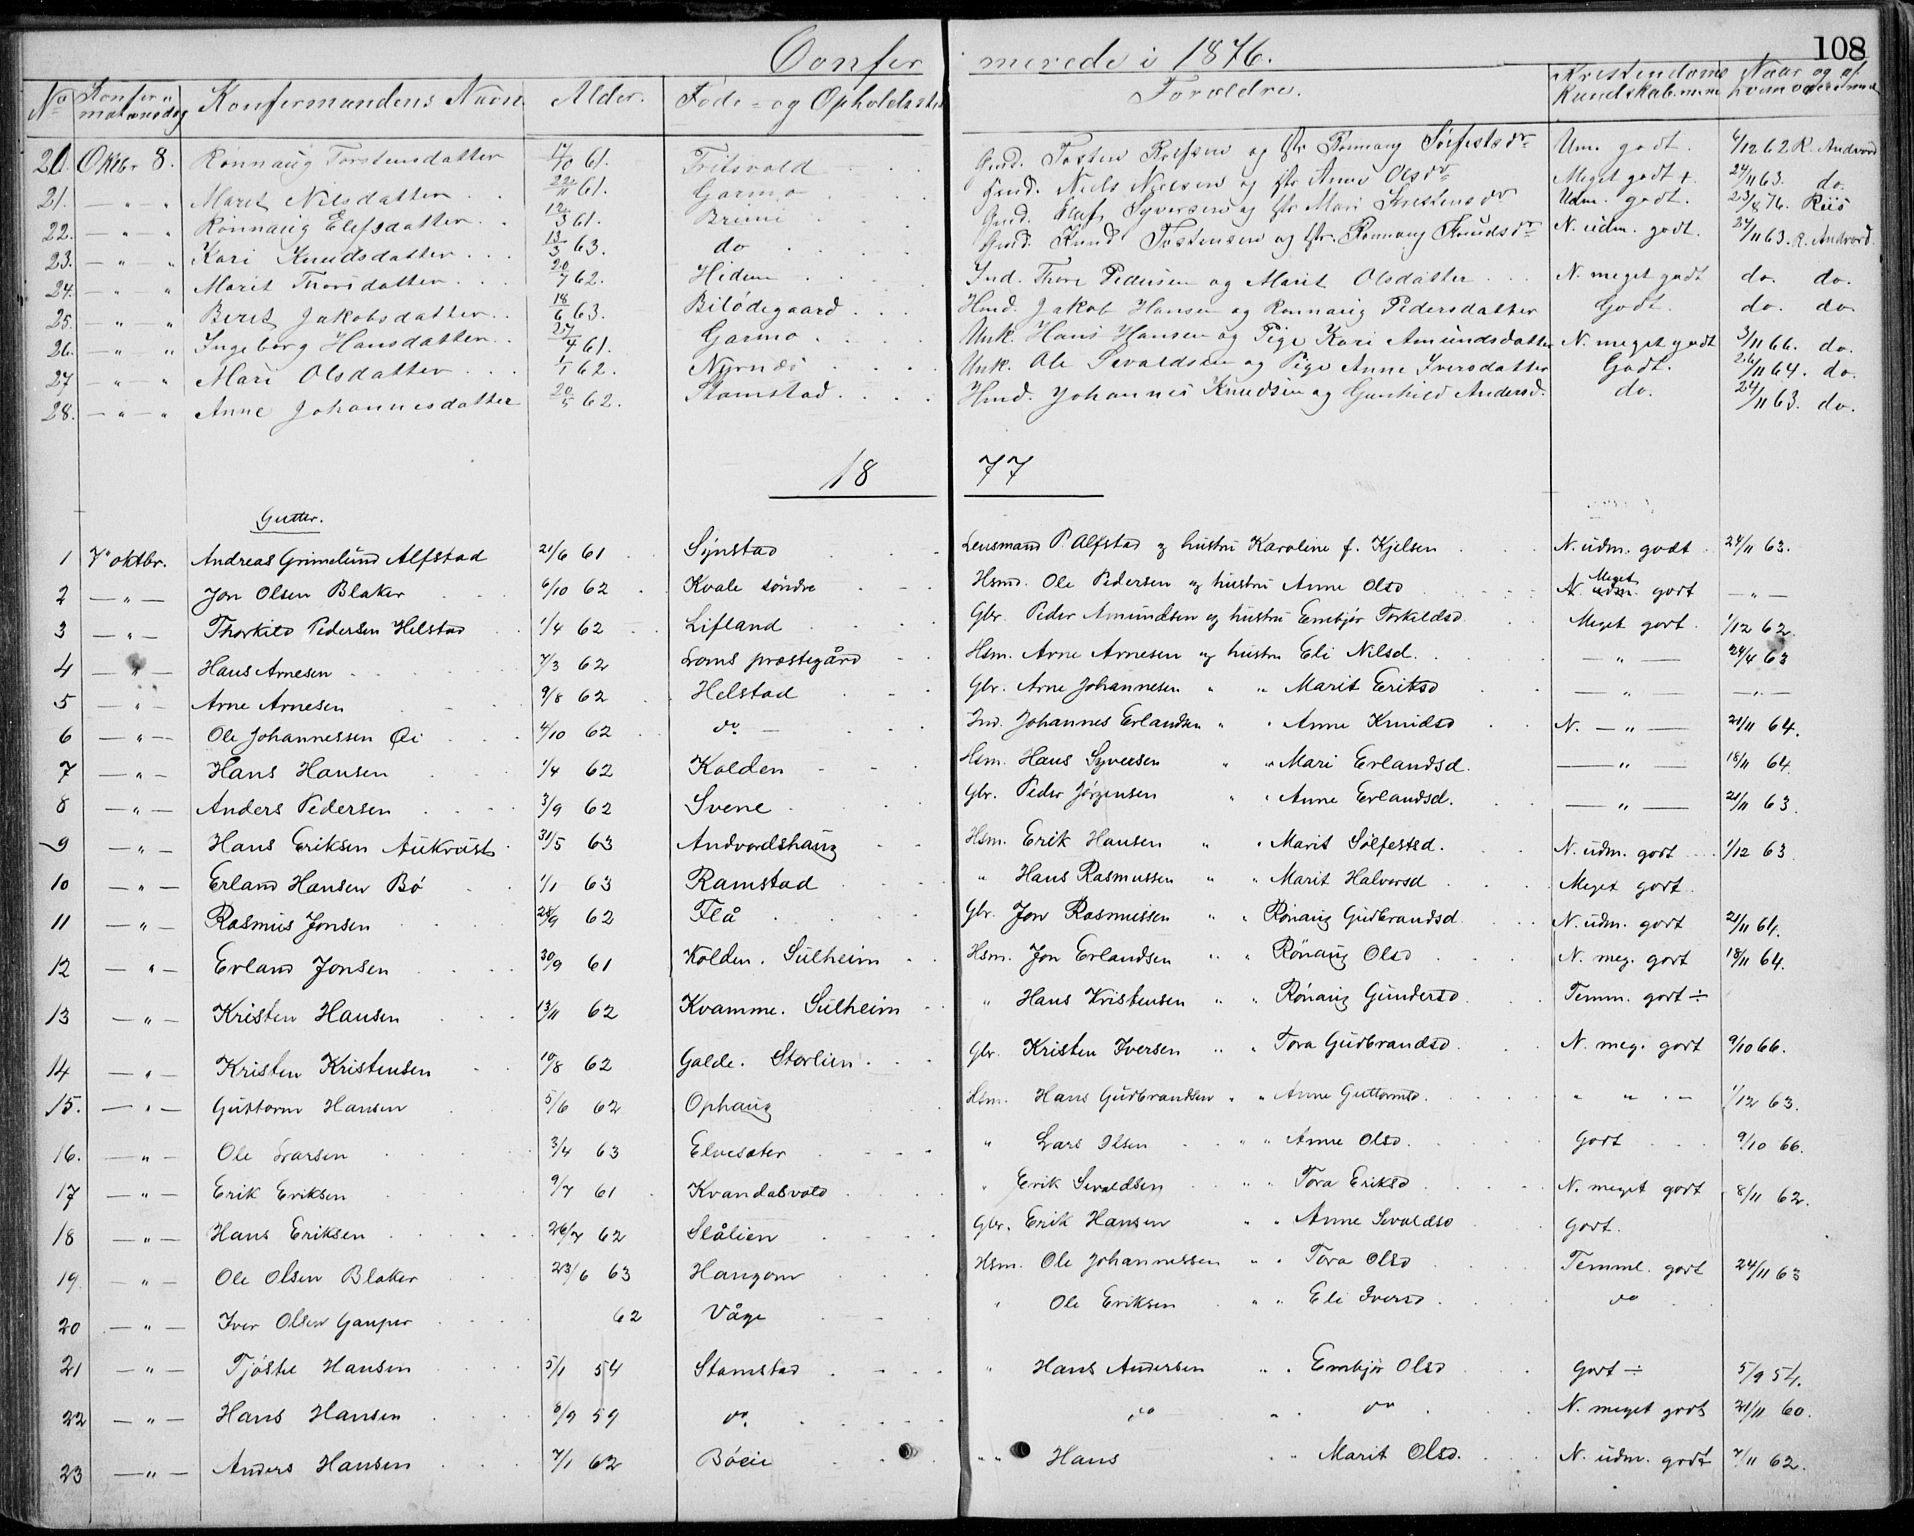 108
Confermerede i 1876.
No Konfermationsdag Konfermandens Navn. Alder. Føde- og Opholdssted Forældre. Kristendoms Kundskab Naar og af hvem
20. Oktbr 8. Rønnaug Torstensdatter 17/10 61. Gmd. Tosten og Rønnaug Um. godt. 4/12 62 R. Andvord
21. — " — Marit Nilsdatter 22/11 61. Garmo Niels Nielsen og Anne Olsdr Meget godt + 24/11 63. do.
22. — " — Rønnaug Elefsdatter 12/3 61. Brimi Syversen og Mari Kristensdr Udm. godt. 23/8 76. Riis
23. — " — Kari Knudsdatter 13/3 63. do Knud Tostensen og Rønnaug Knudsdr N. udm. godt. 24/11 63. R. Andvord.
24. — " — Marit Thorsdatter 20/7 62. Ind. Thore Pedersen og Marit Olsdatter N. meget godt do. do.
25. — " — Berit Jakobsdatter 18/6 63. Bilødegaard Hmd. Jakob Hansen og Rønnaug Pedersdatter Godt. do. do.
26. — " — Ingeborg Hansdatter 27/4 61. Garmo Unk. Hans Hansen og Pige Kari Amundsdatter N. meget godt 3/11 66. do.
27 — " — Mari Olsdatter 1/1 62. Nyrnæs Unk. Ole Sevaldsen og Pige Anne Iversdatter Godt. 26/11 64. do.
28. — " — Anne Johannesdatter 20/5 62. Stamstad Hmd. Johannes Knudsen og Gunhild Andersd. do. 24/11 63. do.
1877
Gutter.
1 7de oktbr. Andreas Grimelund Alfstad 21/6 61 Synstad Lensmand P. Alfstad og hustru Karoline f. Kjelsen N. udm. godt 24/11 63.
2 — " — Jon Olsen Blaker 6/10 62 Kvale søndre Hsmd. Ole Pedersen og hustru Anne Olsd N. Meget godt — " —
3 — " — Thorkild Pedersen Helstad 1/4 62 Lifland Gbr. Peder Amundsen og hustru Embjør Torkildsd. Meget godt. 1/12 62.
4 — " — Hans Arnesen 7/3 62 Loms præstegård Hsm. Arne Arnesen og hustru Eli Nilsd. — " — 24/4 63
5 — " — Arne Arnesen 9/8 62 Helstad Gbr. Arne Johannesen " " Marit Eriksd — " — — " —
6 — " — Ole Johannessen Øi 4/10 62 do. Ind. Johannes Erlandsen " " Anne Knudsd N. — " — 21/11 64.
7 — " — Hans Hansen 1/4 62 Kolden Hsm. Hans Syversen " " Mari Erlandsd. — " — 18/11 64.
8 — " — Anders Pedersen 3/9 62 Svene Gbr. Peder Jørgensen " " Anne Erlandsd. — " — 21/11 63.
9 — " — Hans Eriksen Aukrust 31/5 63 Andvordshaug Hsm. Erik Hansen " " Marit Solfestsd. N. udm. godt 1/12 63.
10 — " — Erland Hansen Bø 1/1 63 Ramstad " Hans Rasmussen " " Marit Halvorsd. Meget godt.
11 — " — Rasmus Jonsen 28/9 62 Flå Gbr. Jon Rasmussen " " Rønaug Gudbrandsd. N. udm. godt 21/11 64.
12 — " — Erland Jonsen 30/9 61 Kolden. Sulheim Hsm. Jon Erlandsen " " Rønaug Olsd N. meg. godt 18/11 64.
13 — " — Kristen Hansen 13/11 62 Kvamme. Sulheim " Hans Kristensen " " Rønaug Gundersd Temm. godt ÷
14 — " — Kristen Kristensen 10/8 62 Galde. Storlien Gbr. Kristen Iversen " " Tora Gudbrandsd. N. meg. godt 9/10 66.
15. — " — Guttorm Hansen 5/6 62 Ophaug Hsm. Hans Gudbrandsen " " Anne Guttormsd. " " — 1/12 63.
16. — " — Ole Larsen 3/4 63 Elvesæter " Lars Olsen " " Anne Olsd. Godt 9/10 66.
17 — " — Erik Eriksen 9/7 61 Kvandalsvold " Erik Sevaldsen " " Tora Eriksd N. meget godt 8/11 62.
18 — " — Hans Eriksen 26/7 62 Slålien Gbr. Erik Hansen " " Anne Sevaldsd Godt.
19. — " — Ole Olsen Blaker 23/6 63 Haugom Hsm. Ole Johannessen " " Tora Olsd Temml. godt 24/11 63
20 — " — Iver Olsen Gauper 62 Våge " Ole Eriksen " " Eli Iversd do
21 — " — Tjøstel Hansen 5/1 54 Stamstad " Hans Andersen " " Embjør Olsd Godt ÷ 5/9 54.
22 — " — Hans Hansen 6/9 59 do. do " do N. meget godt 21/11 60.
23 — " — Anders Hansen 7/1 62 Bøeie " " Hans " " Marit Olsd. N. udm. godt 7/11 62.